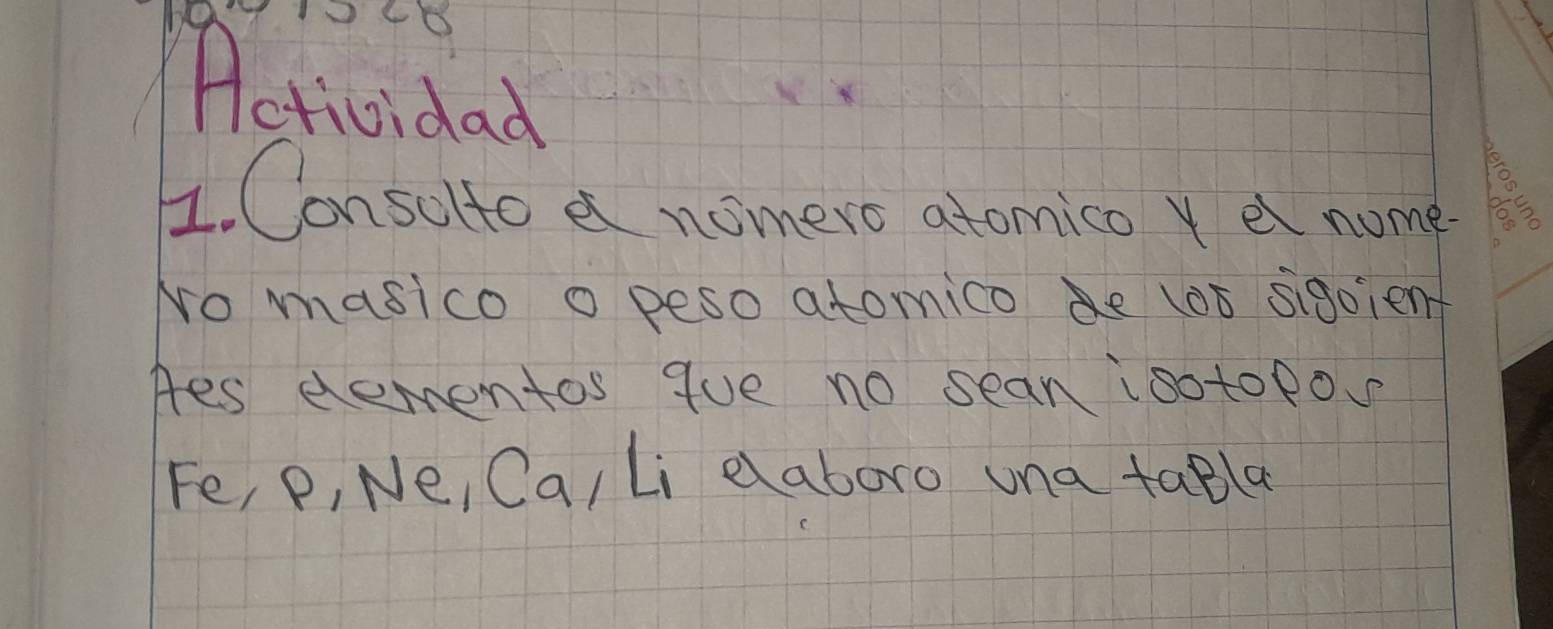 Actividad
1. Consulto el número atomico y el nume-
ro masico o peso atomico de los siguient
tes elementos que no sean isotopos
Fe, P, Ne, Ca, Li elaboro una tabla
uno
dos